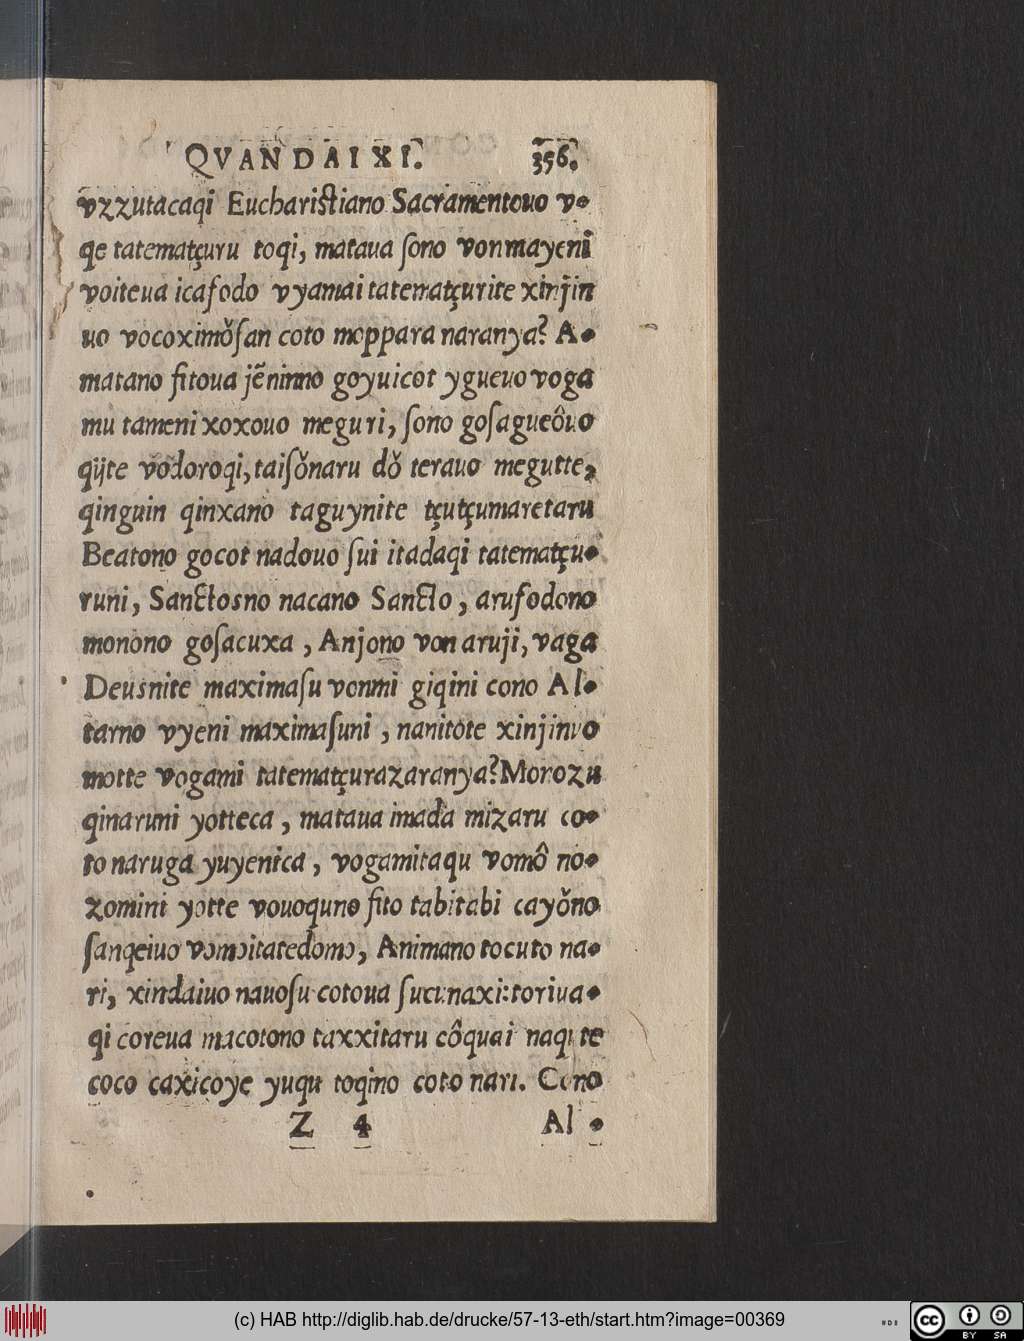 QVAN DAI XI. 356.
vzzutacaqi Euchariſtiano Sacramentouo v-
qe tatematçuru toqi, mataua ſono vonmayeni
voiteua icafodo vyamai tatematçurite xinjin
uo vocoximǒſan coto moppara naranya? A-
matano fitoua jẽninno goyuicot ygueuo voga
mu tameni xoxouo meguri, ſono goſagueôuo
qijte vodoroqi, taiſǒnaru dǒ terauo megutte,
qinguin qinxano taguynite tçutçumaretaru
Beatono gocot nadouo ſui itadaqi tatematçu-
runi, Sanctosno nacano Sancto, arufodono
monono goſacuxa, Anjono von aruji, vaga
Deusnite maximaſu vonmi giqini cono Al-
tarno vyeni maximaſuni, nanitote xinjinvo
motte vogami tatematçurazaranya? Morozu
qinaruni yotteca, mataua imada mizaru co-
to naruga yuyenica, vogamitaqu vomô no-
zomini yotte vouoquno fito tabitabi cayǒno
ſanqeiuo vomoitatedomo, Animano tocuto na-
ri, xindaiuo nauoſu cotoua ſucunaxi: toriua-
qi coreua macotono taxxitaru côquai naqite
coco caxicoye yuqu toqino coto nari. Cono
Z 4 Al-
(c) HAB http://diglib.hab.de/drucke/57-13-eth/start.htm?image=00369
cc BY SA